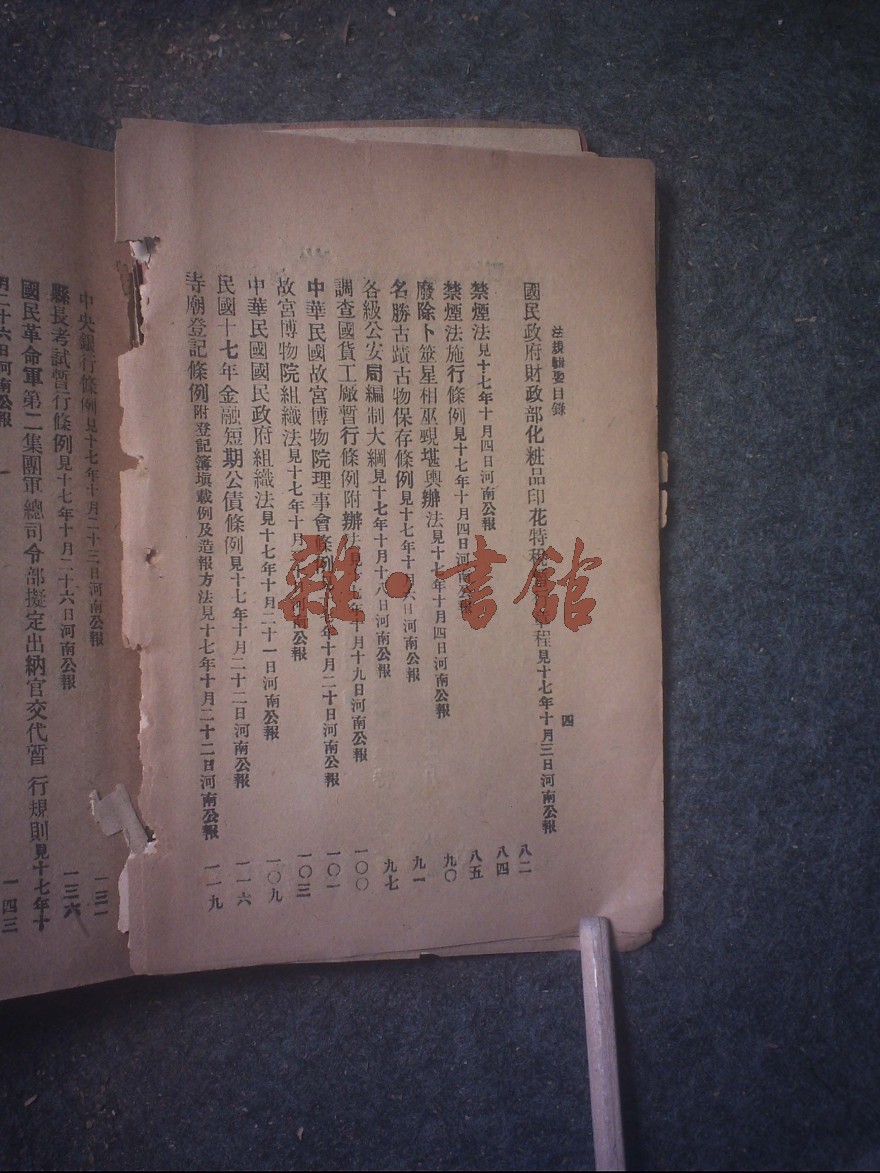 法規輯要目錄
四
國民政府財政部化粧品印花特稅 程見十七年十月三日河南公報 八二
禁煙法見十七年十月四日河南公報 八四
禁煙法施行條例見十七年十月四日河南公報 八五
廢除卜筮星相巫覡堪輿辦法見十七年十月四日河南公報 九〇
名勝古蹟古物保存條例見十七年十月六日河南公報 九一
各級公安局編制大綱見十七年十月十八日河南公報 九七
調查國貨工廠暫行條例附辦法見十七年十月十九日河南公報 一〇〇
中華民國故宮博物院理事會條例見十七年十月二十日河南公報 一〇一
故宮博物院組織法見十七年十月 日河南公報 一〇三
中華民國國民政府組織法見十七年十月二十一日河南公報 一〇九
民國十七年金融短期公債條例見十七年十月二十二日河南公報 一一六
寺廟登記條例附登記簿填載例及造報方法見十七年十月二十二日河南公報 一一九
中央銀行條例見十七年十月二十三日河南公報 一三一
縣長考試暫行條例見十七年十月二十六日河南公報 一三六
國民革命軍第二集團軍總司令部擬定出納官交代暫行規則見十七年十
月二十六日河南公報 一四三
雜·書館